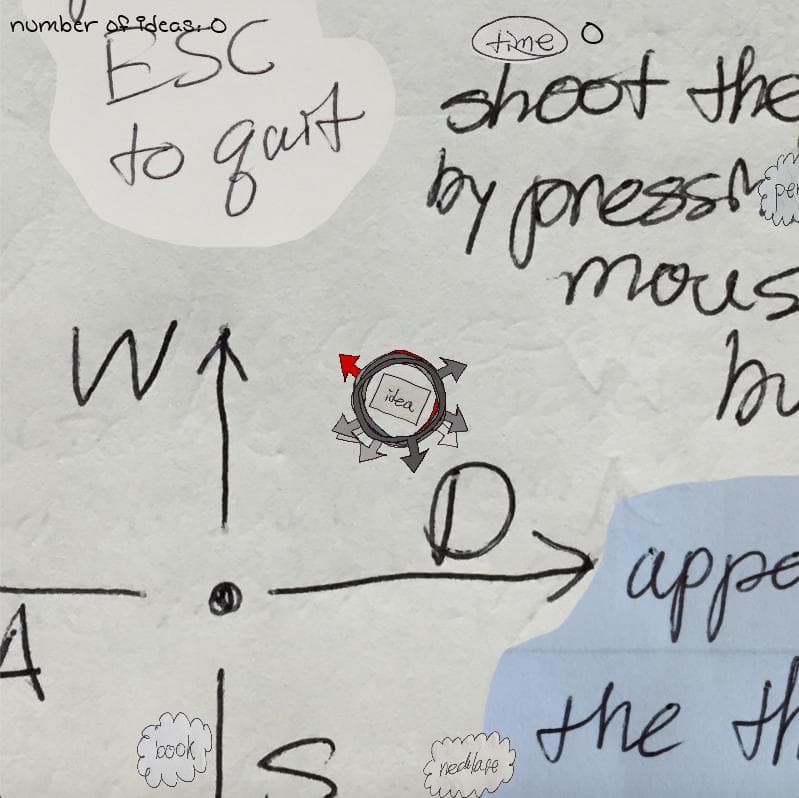 number of ideas: 0
time 0
ESC
to quit
shoot the
by press
mous
W
idea
D
appe
A
the th
book
S
necklace